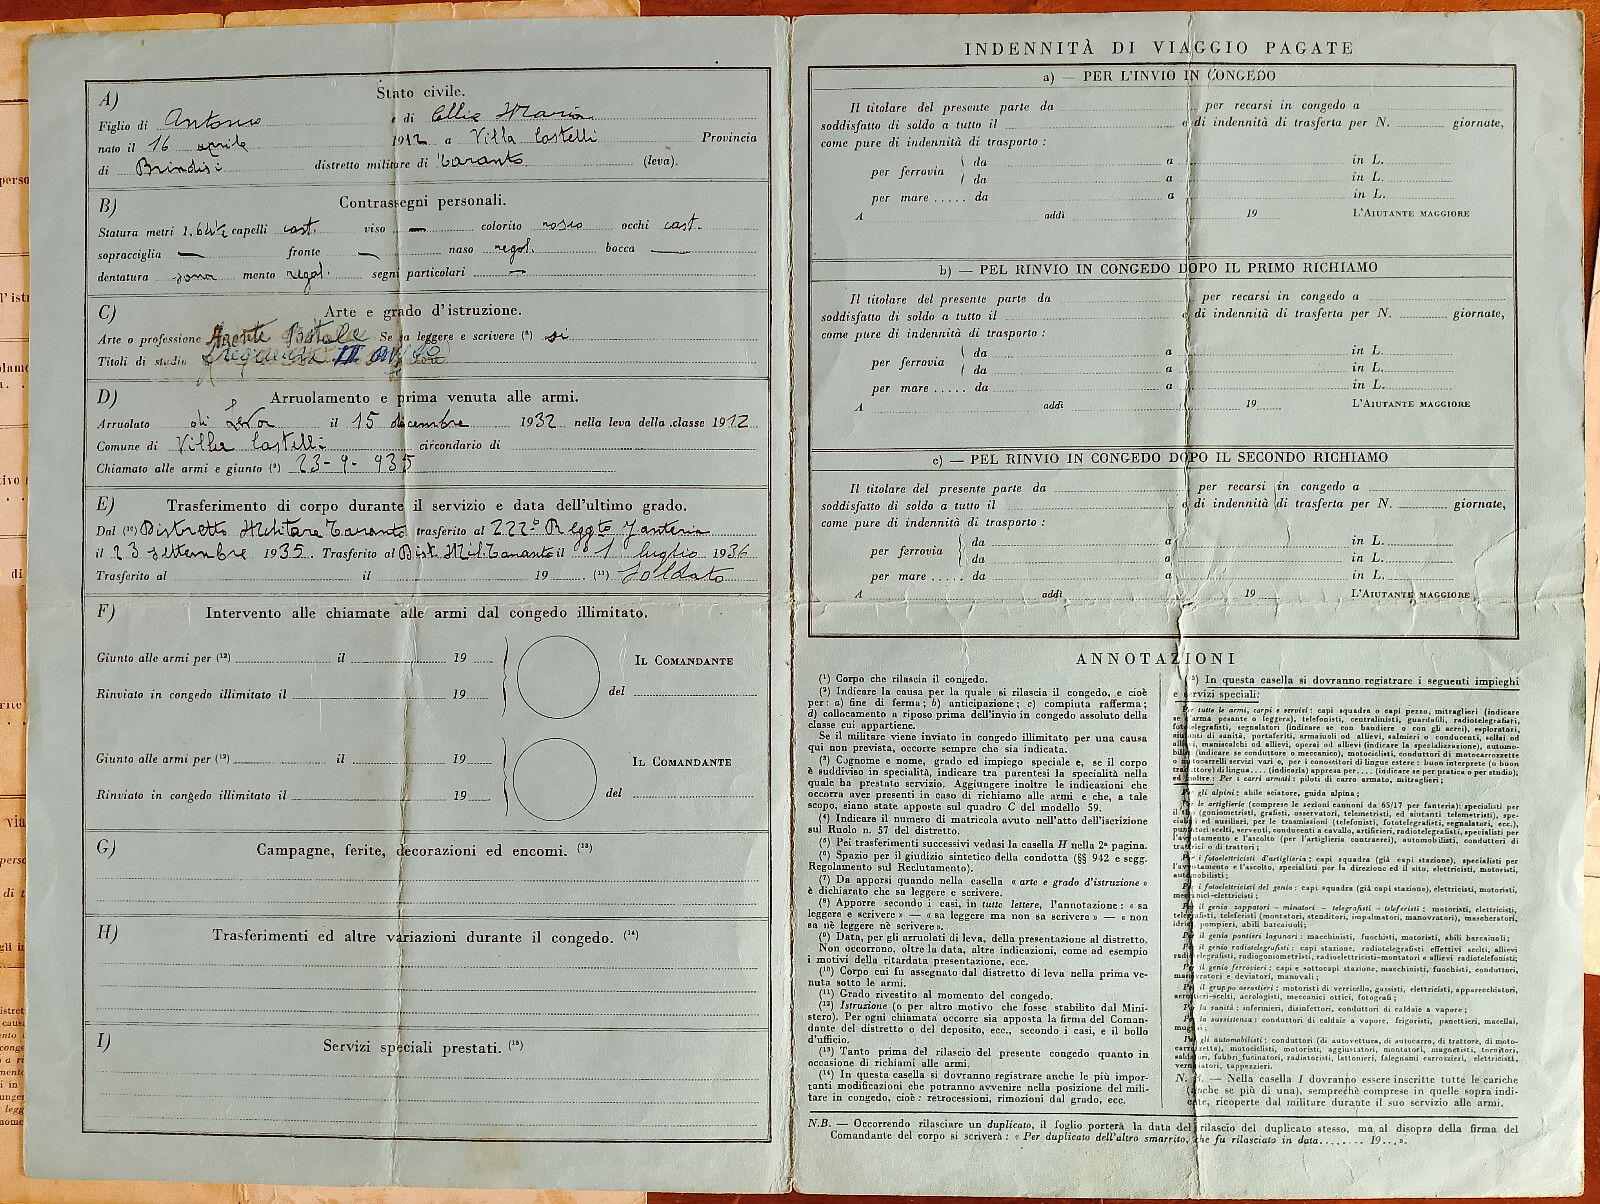 A) Stato civile.
Figlio di Antonio e di Ellia Maria
nato il 16 aprile 1912 a Villa Castelli Provincia
di Brindisi distretto militare di Taranto (leva).
B) Contrassegni personali.
Statura metri 1,64½ capelli cast. viso — colorito roseo occhi cast.
sopracciglia — fronte — naso regol. bocca —
dentatura sana mento regol. segni particolari —
C) Arte e grado d'istruzione.
Arte o professione Agente Postale Sa leggere e scrivere (8) si
Titoli di studio III
D) Arruolamento e prima venuta alle armi.
Arruolato di Leva il 15 dicembre 1932 nella leva della classe 1912
Comune di Villa Castelli circondario di
Chiamato alle armi e giunto (9) 23-9-935
E) Trasferimento di corpo durante il servizio e data dell'ultimo grado.
Dal (10) Distretto Militare Taranto trasferito al 222º Reggto Fanteria
il 23 settembre 1935. Trasferito al Dist. Mil. Taranto il 1 luglio 1936
Trasferito al il 19 (11) Soldato
F) Intervento alle chiamate alle armi dal congedo illimitato.
Giunto alle armi per (12) il 19 IL COMANDANTE
Rinviato in congedo illimitato il 19 del
Giunto alle armi per (12) il 19 IL COMANDANTE
Rinviato in congedo illimitato il 19 del
G) Campagne, ferite, decorazioni ed encomi. (13)
H) Trasferimenti ed altre variazioni durante il congedo. (14)
I) Servizi speciali prestati. (15)
INDENNITÀ DI VIAGGIO PAGATE
a) — PER L'INVIO IN CONGEDO
Il titolare del presente parte da per recarsi in congedo a
soddisfatto di soldo a tutto il e di indennità di trasferta per N. giornate,
come pure di indennità di trasporto :
per ferrovia da a in L.
da a in L.
per mare ..... da a in L.
A addì 19 L'AIUTANTE MAGGIORE
b) — PEL RINVIO IN CONGEDO DOPO IL PRIMO RICHIAMO
Il titolare del presente parte da per recarsi in congedo a
soddisfatto di soldo a tutto il e di indennità di trasferta per N. giornate,
come pure di indennità di trasporto :
per ferrovia da a in L.
da a in L.
per mare ..... da a in L.
A addì 19 L'AIUTANTE MAGGIORE
c) — PEL RINVIO IN CONGEDO DOPO IL SECONDO RICHIAMO
Il titolare del presente parte da per recarsi in congedo a
soddisfatto di soldo a tutto il e di indennità di trasferta per N. giornate,
come pure di indennità di trasporto :
per ferrovia da a in L.
da a in L.
per mare ..... da a in L.
A addì 19 L'AIUTANTE MAGGIORE
ANNOTAZIONI
(1) Corpo che rilascia il congedo.
(2) Indicare la causa per la quale si rilascia il congedo, e cioè
per: a) fine di ferma; b) anticipazione; c) compiuta rafferma;
d) collocamento a riposo prima dell'invio in congedo assoluto della
classe cui appartiene.
Se il militare viene inviato in congedo illimitato per una causa
qui non prevista, occorre sempre che sia indicata.
(3) Cognome e nome, grado ed impiego speciale e, se il corpo
è suddiviso in specialità, indicare tra parentesi la specialità nella
quale ha prestato servizio. Aggiungere inoltre le indicazioni che
occorra aver presenti in caso di richiamo alle armi e che, a tale
scopo, siano state apposte sul quadro C del modello 59.
(4) Indicare il numero di matricola avuto nell'atto dell'iscrizione
sul Ruolo n. 57 del distretto.
(5) Pei trasferimenti successivi vedasi la casella H nella 2ª pagina.
(6) Spazio per il giudizio sintetico della condotta (§§ 942 e segg.
Regolamento sul Reclutamento).
(7) Da apporsi quando nella casella « arte e grado d'istruzione »
è dichiarato che sa leggere e scrivere.
(8) Apporre secondo i casi, in tutte lettere, l'annotazione: « sa
leggere e scrivere » — « sa leggere ma non sa scrivere » — « non
sa nè leggere nè scrivere ».
(9) Data, per gli arruolati di leva, della presentazione al distretto.
Non occorrono, oltre la data, altre indicazioni, come ad esempio
i motivi della ritardata presentazione, ecc.
(10) Corpo cui fu assegnato dal distretto di leva nella prima ve-
nuta sotto le armi.
(11) Grado rivestito al momento del congedo.
(12) Istruzione (o per altro motivo che fosse stabilito dal Mini-
stero). Per ogni chiamata occorre sia apposta la firma del Coman-
dante del distretto o del deposito, ecc., secondo i casi, e il bollo
d'ufficio.
(13) Tanto prima del rilascio del presente congedo quanto in
occasione di richiami alle armi.
(14) In questa casella si dovranno registrare anche le più impor-
tanti modificazioni che potranno avvenire nella posizione del mili-
tare in congedo, cioè: retrocessioni, rimozioni dal grado, ecc.
In questa casella si dovranno registrare i seguenti impieghi
e servizi speciali:
Per tutte le armi, corpi e servizi: capi squadra o capi pezzo, mitraglieri (indicare
se d'arma pesante o leggera), telefonisti, centralinisti, guardafili, radiotelegrafisti,
fototelegrafisti, segnalatori (indicare se con bandiere o con gli aerei), esploratori,
aiutanti di sanità, portaferiti, armaiuoli od allievi, salmieri o conducenti, sellai od
allievi, maniscalchi od allievi, operai od allievi (indicare la specializzazione), automo-
bilisti (indicare se conduttore o meccanico), motociclisti, conduttori di motocarrozzette
o motocarrelli servizi vari e, per i conoscitori di lingue estere: buon interprete (o buon
traduttore) di lingua.... (indicarla) appresa per.... (indicare se per pratica o per studio);
ed inoltre: Per i carri armati: piloti di carro armato, mitraglieri;
Per gli alpini: abile sciatore, guida alpina;
Per le artiglierie (comprese le sezioni cannoni da 65/17 per fanteria): specialisti per
il tiro (goniometristi, grafisti, osservatori, telemetristi, ed aiutanti telemetristi), spe-
cialisti ed ausiliari, per le trasmissioni (telefonisti, fototelegrafisti, segnalatori, ecc.),
puntatori scelti, serventi, conducenti a cavallo, artificieri, radiotelegrafisti, specialisti per
l'avvistamento e l'ascolto (per l'artiglieria contraerei), automobilisti, conduttori di
trattrici o di trattori;
Per i fotoelettricisti d'artiglieria: capi squadra (già capi stazione), specialisti per
l'avvistamento e l'ascolto, specialisti per la direzione ed il sito, elettricisti, motoristi,
automobilisti;
Per i fotoelettricisti del genio: capi squadra (già capi stazione), elettricisti, motoristi,
meccanici-elettricisti;
Per il genio zappatori - minatori - telegrafisti - teleferisti: motoristi, elettricisti,
telegrafisti, teleferisti (montatori, stenditori, impalmatori, manovratori), mascheratori,
idrici, pompieri, abili barcaiuoli;
Per il genio pontieri lagunari: macchinisti, fuochisti, motoristi, abili barcaiuoli;
Per il genio radiotelegrafisti: capi stazione, radiotelegrafisti effettivi scelti, allievi
radiotelegrafisti, radiogoniometristi, radioelettricisti-montatori e allievi radiotelefonisti;
Per il genio ferrovieri: capi e sottocapi stazione, macchinisti, fuochisti, conduttori,
manovratori e deviatori, manovali;
Per il gruppo aerostieri: motoristi di verricello, gassisti, elettricisti, apparecchiatori,
aerostieri-scelti, aerologisti, meccanici ottici, fotografi;
Per la sanità: infermieri, disinfettori, conduttori di caldaie a vapore;
Per la sussistenza: conduttori di caldaie a vapore, frigoristi, panettieri, macellai,
mugnai;
Per gli automobilisti: conduttori (di autovettura, di autocarro, di trattore, di moto-
carrozzetta), motociclisti, motoristi, aggiustatori, montatori, magnetisti, tornitori,
saldatori, fabbri fucinatori, radiatoristi, lattonieri, falegnami carrozzieri, elettricisti,
verniciatori, tappezzieri.
N. B. — Nella casella I dovranno essere inscritte tutte le cariche
(anche se più di una), sempreché comprese in quelle sopra indi-
cate, ricoperte dal militare durante il suo servizio alle armi.
N.B. — Occorrendo rilasciare un duplicato, il foglio porterà la data del rilascio del duplicato stesso, ma al disopra della firma del
Comandante del corpo si scriverà: « Per duplicato dell'altro smarrito, che fu rilasciato in data........ 19...».